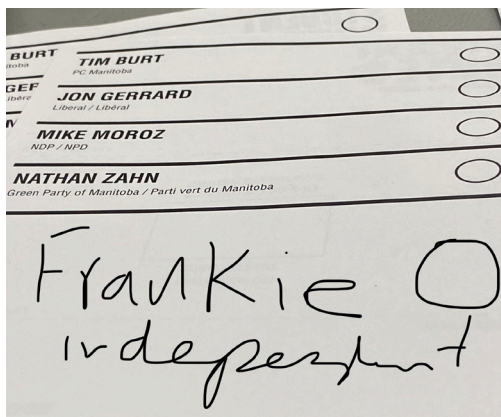 BURT
itoba
GER
ibéra
TIM BURT
PC Manitoba
JON GERRARD
Liberal / Libéral
MIKE MOROZ
NDP / NPD
NATHAN ZAHN
Green Party of Manitoba / Parti vert du Manitoba
Frankie
independent